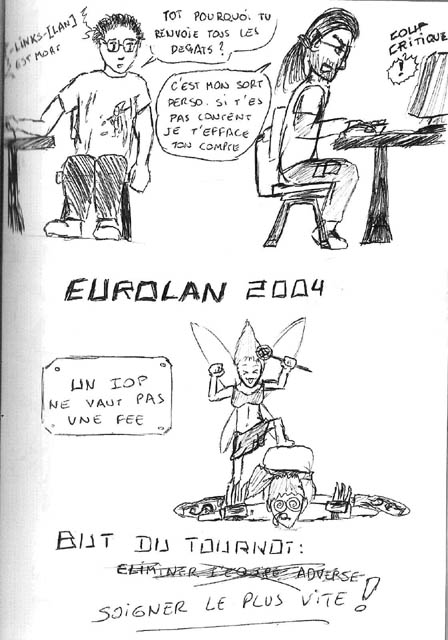 -LINKS-[LAN]
EST MORT
TOT POURQUOI TU
RENVOIE TOUS LES
DEGATS ?
C'EST MON SORT
PERSO. SI T'ES
PAS CONTENT
JE T'EFFACE
TON COMPTE
COUP
CRITIQUE
!
EUROLAN 2004
UN IOP
NE VAUT PAS
UNE FEE
BUT DU TOURNOI:
ELIMINER L'EQUIPE ADVERSE
SOIGNER LE PLUS VITE !